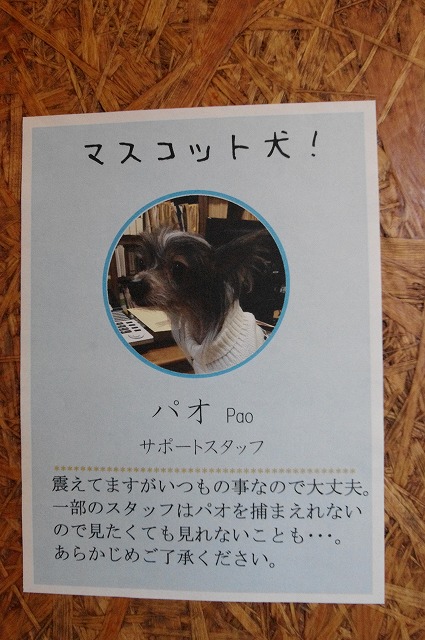 マスコット犬!
パオ Pao
サポートスタッフ
震えてますがいつもの事なので大丈夫。
一部のスタッフはパオを捕まえれない
ので見たくても見れないことも・・・。
あらかじめご了承ください。